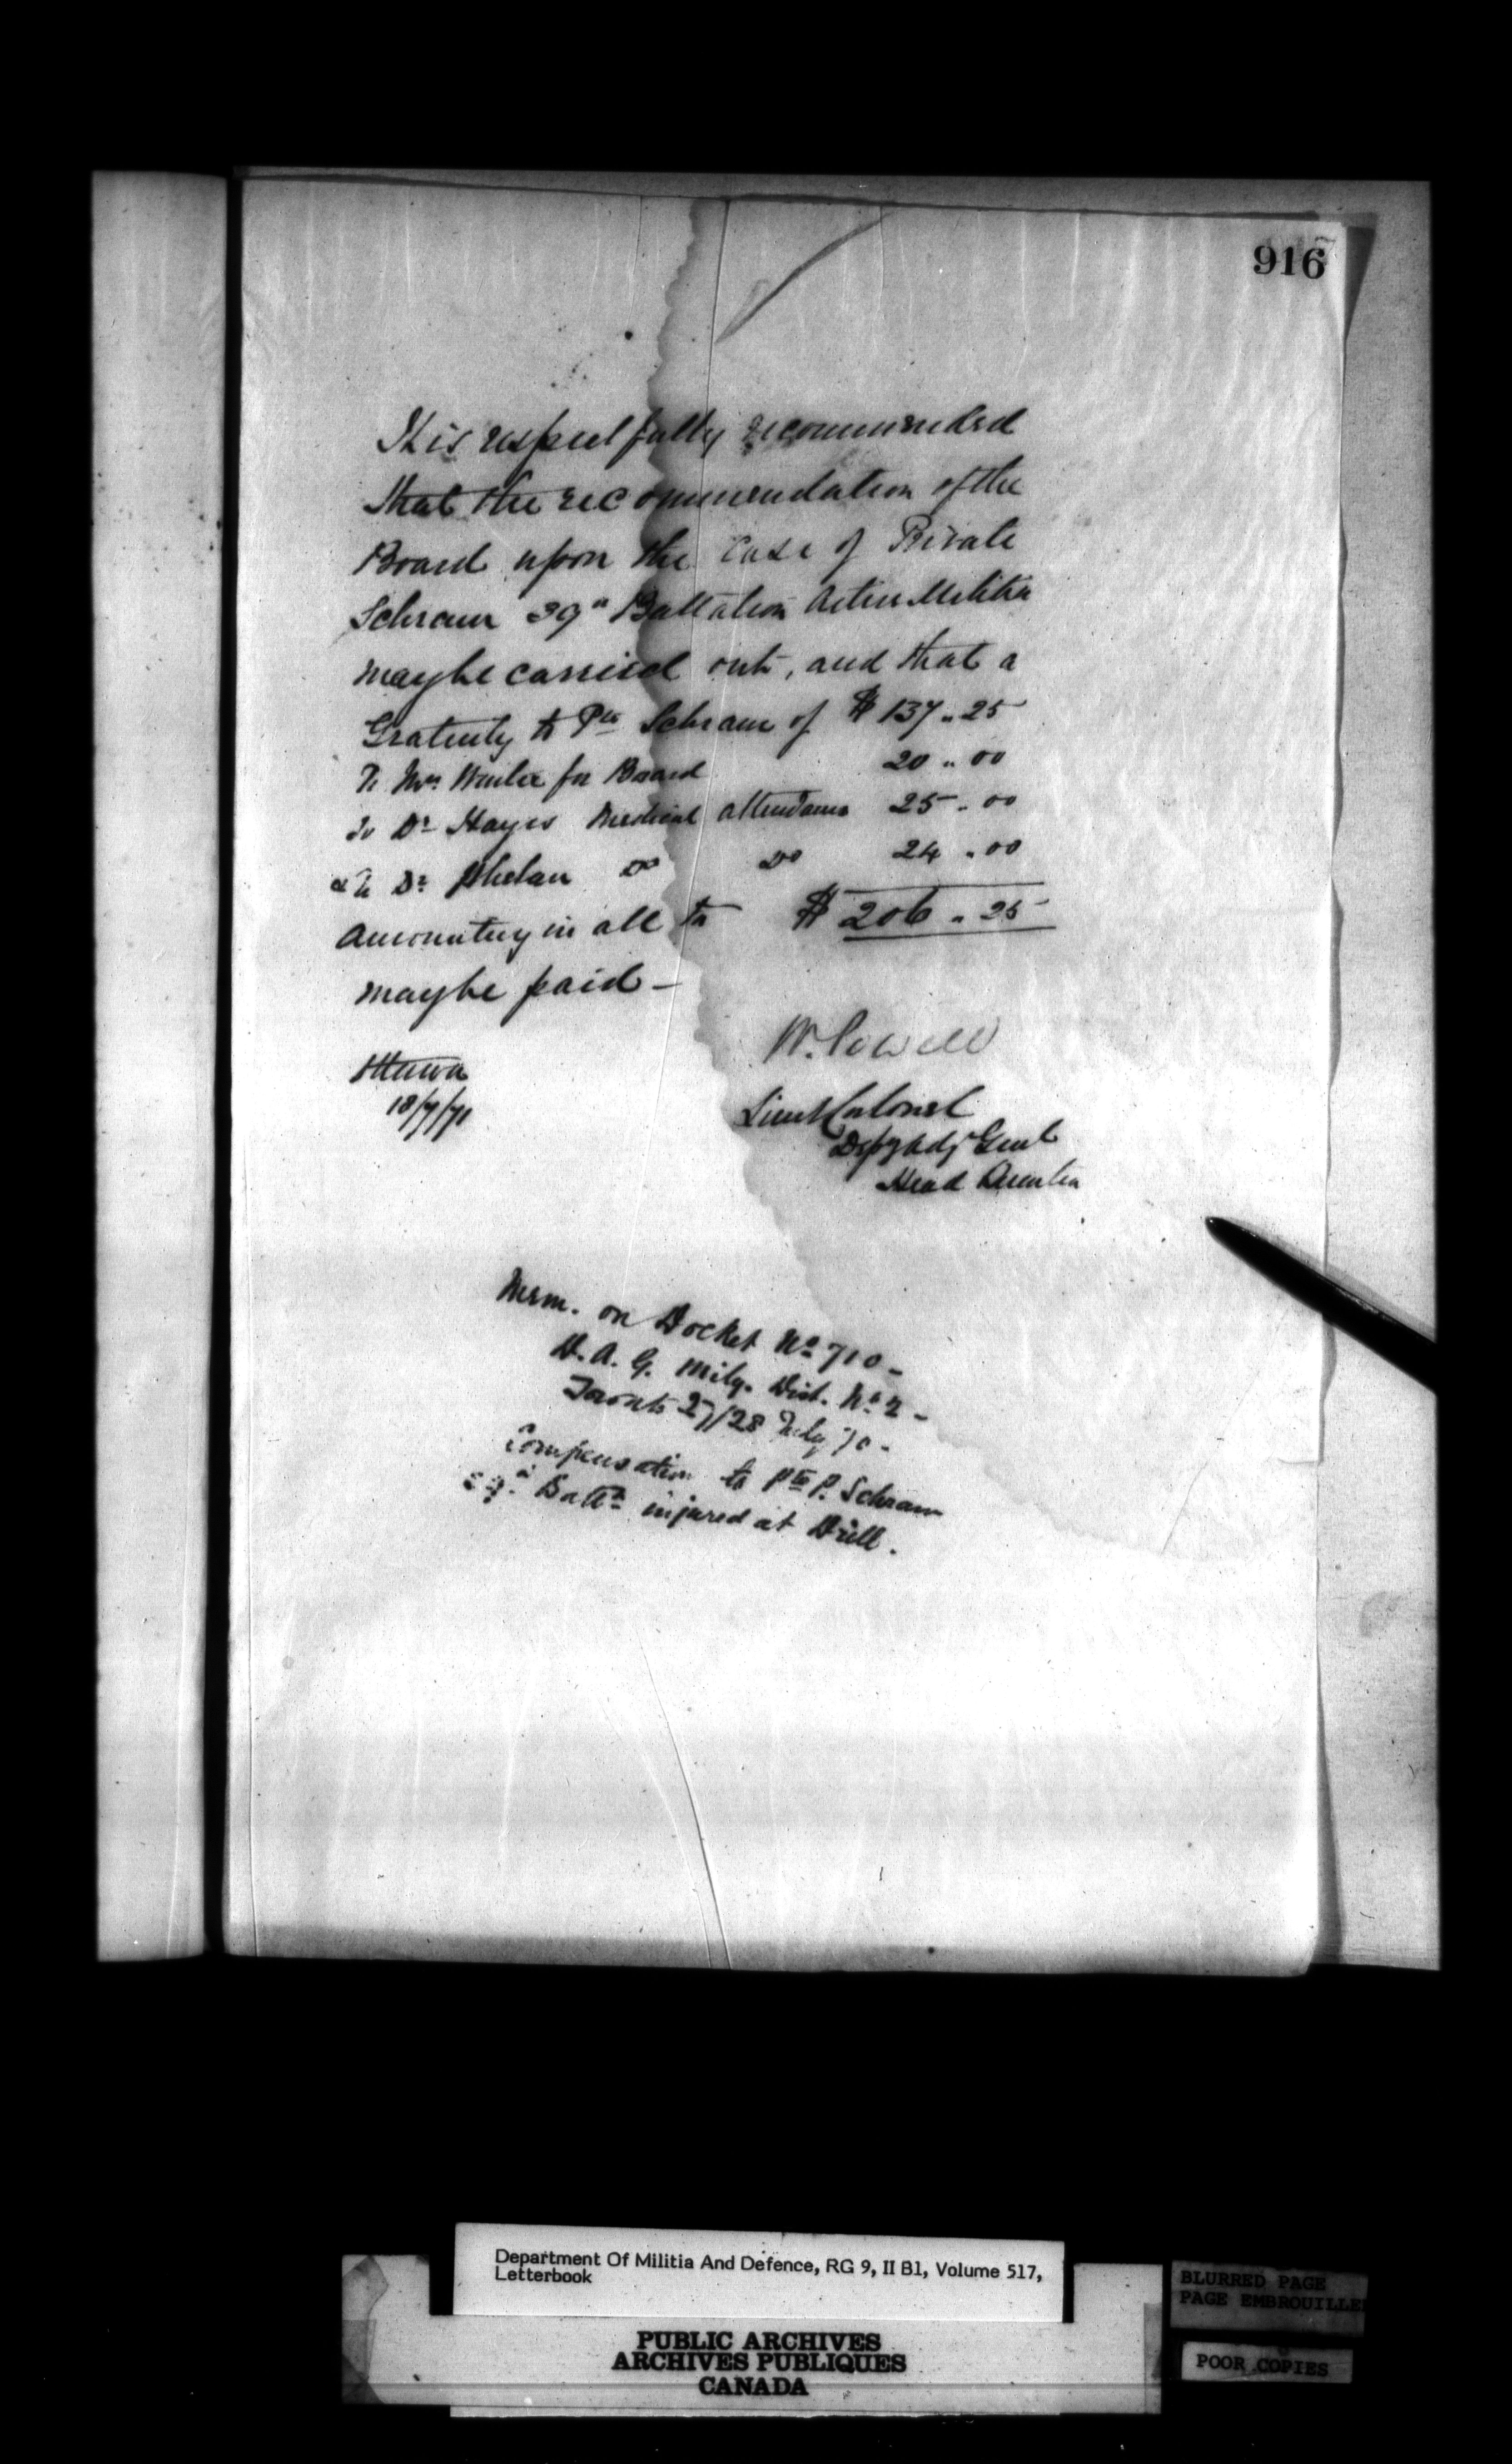 916
It is respectfully recommended
that the recommendation of the
Board upon the case of Private
Schram 39th Battalion Active Militia
may be carried out, and that a
Gratuity to Pte Schram of $137.25
To Mrs for Board 20.00
To Dr Hayes Medical attendance 25.00
& To Dr Phelan Do Do 24.00
Amounting in all to $206.25
may be paid —
Ottawa
18/7/71
W. Powell
Lieut Colonel
Depy Adj Genl
Head Quarters
Mem. on Docket No 710 -
D. A. G. Mily. Dist. No 2 -
Toronto 27/28 July 70 -
Compensation to Pte P. Schram
Battn injured at Drill.
Department Of Militia And Defence, RG 9, II B1, Volume 517,
Letterbook
PUBLIC ARCHIVES
ARCHIVES PUBLIQUES
CANADA
BLURRED PAGE
PAGE EMBROUILLEE
POOR COPIES